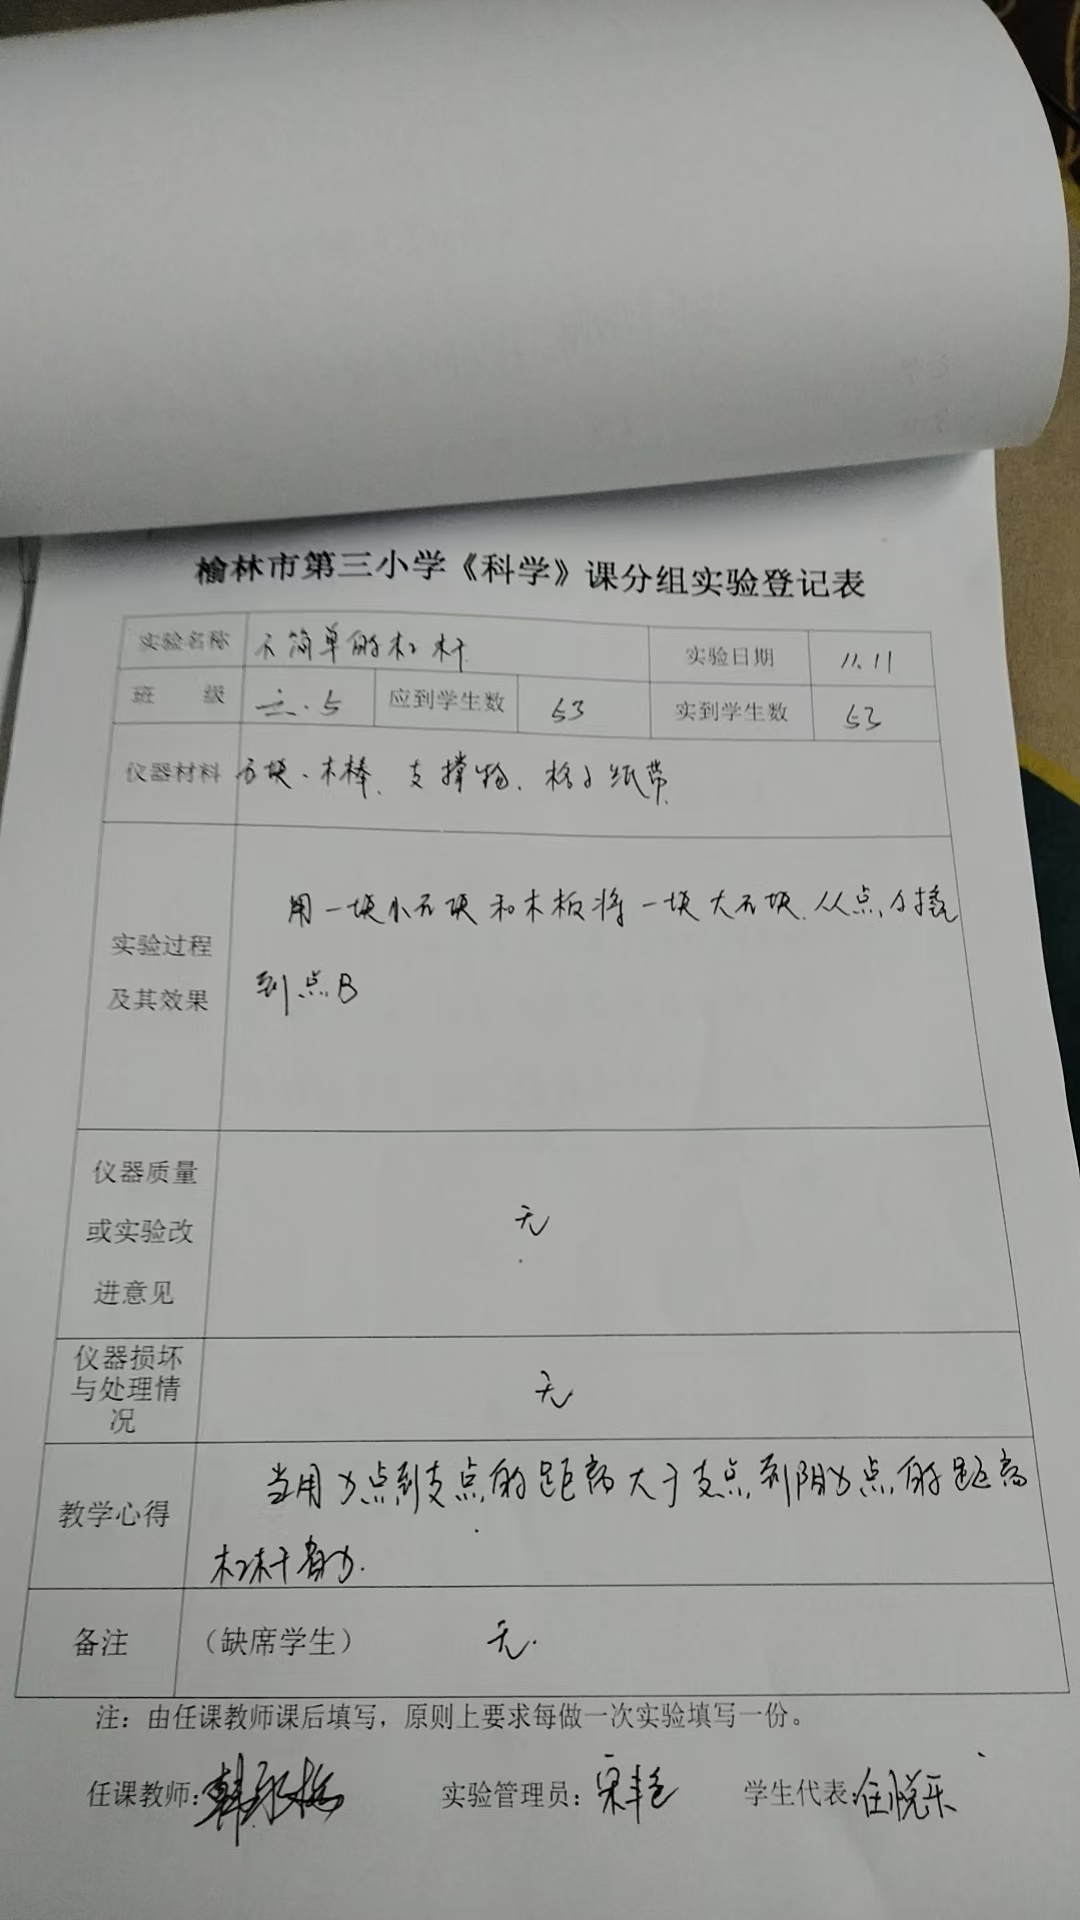 榆林市第三小学《科学》课分组实验登记表
实验名称 不简单的杠杆 实验日期 11.11
班 级 六.5 应到学生数 53 实到学生数 53
仪器材料 方块、木棒、支撑物、格子纸带
用一块小石块和木板将一块大石块从点A撬
实验过程
及其效果
到点B
仪器质量
或实验改
进意见
无
仪器损坏
与处理情
况
无
教学心得
当用力点到支点的距离大于支点到阻力点的距离
杠杆省力.
备注 （缺席学生） 无.
注：由任课教师课后填写，原则上要求每做一次实验填写一份。
任课教师: 韩 实验管理员: 宋艳 学生代表: 任悦乐